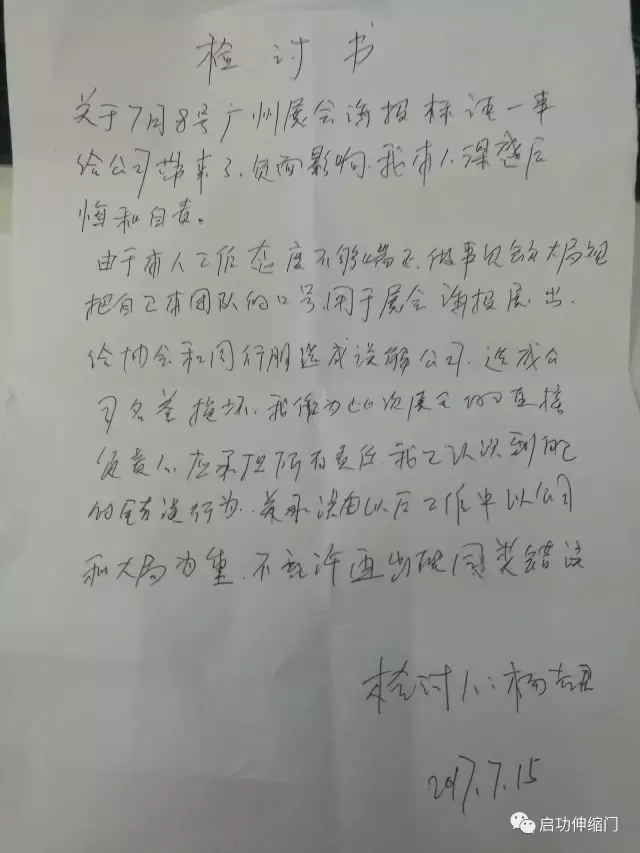 检讨书
关于7月8号广州展会海报标语一事
给公司带来了负面影响.我本人深感后
悔和自责。
由于本人工作态度不够端正.做事忽略大局观
把自己本团队的口号.用于展会海报展出.
给协会和同行朋造成误解公司.造成公
司名誉损坏.我做为此次展会的直接
负责人.应承担所有责任.我已认识到
的错误行为.并承诺在以后工作中以公司
和大局为重.不允许再出现同类错误
检讨人:杨
2017.7.15
启功伸缩门